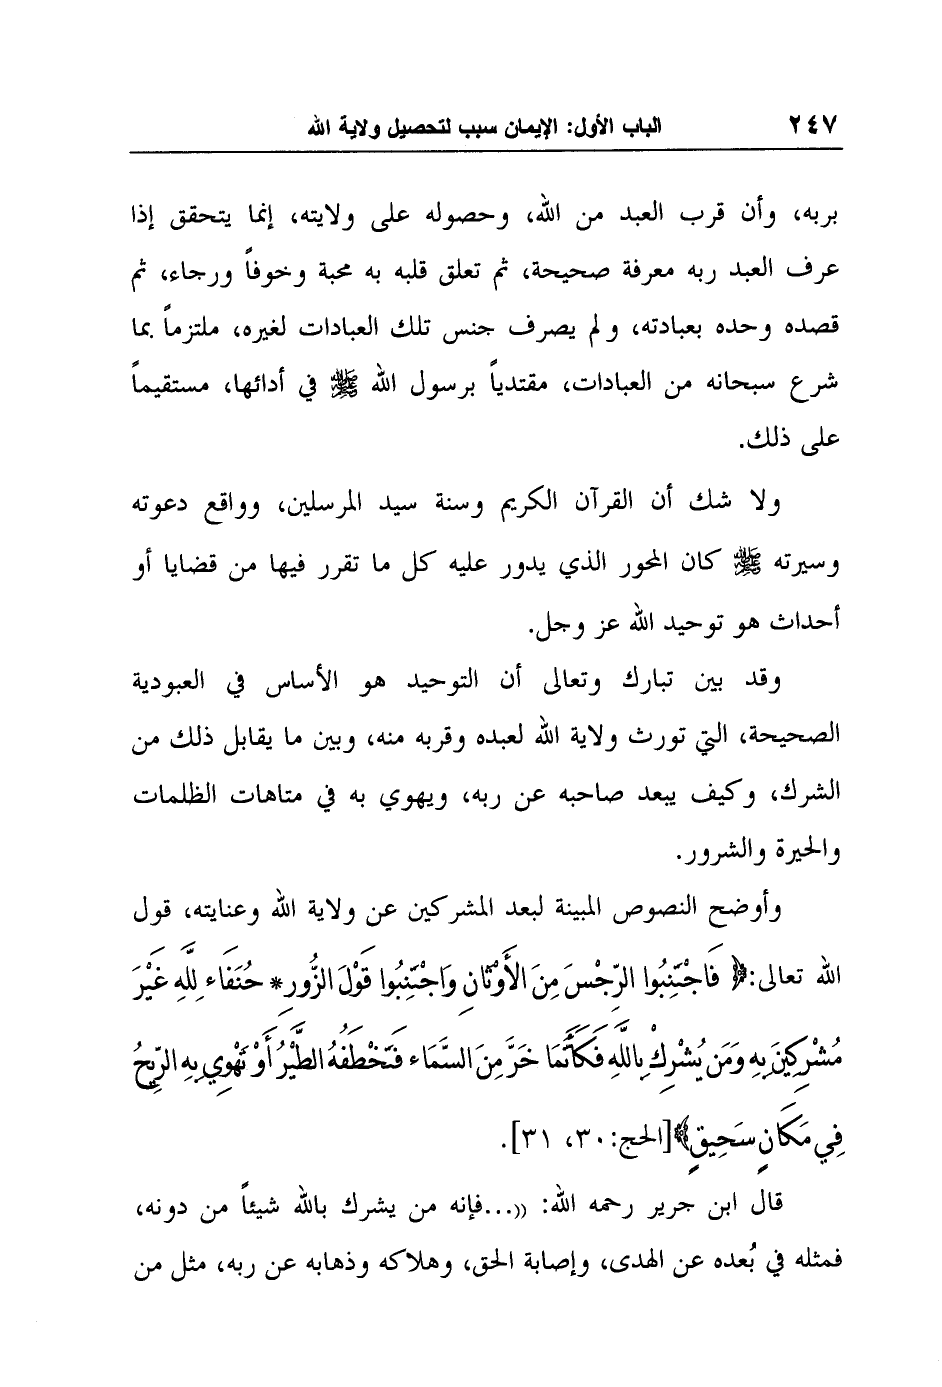 ٢٤٧ الباب الأول: الإيمان سبب لتحصيل ولاية الله
بربه، وأن قرب العبد من الله، وحصوله على ولايته، إنما يتحقق إذا
عرف العبد ربه معرفة صحيحة، ثم تعلق قلبه به محبة وخوفاً ورجاء، ثم
قصده وحده بعبادته، ولم يصرف جنس تلك العبادات لغيره، ملتزماً بما
شرع سبحانه من العبادات، مقتدياً برسول الله ﷺ في أدائها، مستقيماً
على ذلك.
ولا شك أن القرآن الكريم وسنة سيد المرسلين، وواقع دعوته
وسيرته ﷺ كان المحور الذي يدور عليه كل ما تقرر فيها من قضايا أو
أحداث هو توحيد الله عز وجل.
وقد بين تبارك وتعالى أن التوحيد هو الأساس في العبودية
الصحيحة، التي تورث ولاية الله لعبده وقربه منه، وبين ما يقابل ذلك من
الشرك، وكيف يبعد صاحبه عن ربه، ويهوي به في متاهات الظلمات
والحيرة والشرور.
وأوضح النصوص المبينة لبعد المشركين عن ولاية الله وعنايته، قول
الله تعالى:﴿فَاجْتَنِبُوا الرِّجْسَ مِنَ الْأَوْثَانِ وَاجْتَنِبُوا قَوْلَ الزُّورِ* حُنَفَاءَ لِلَّهِ غَيْرَ
مُشْرِكِينَ بِهِ وَمَن يُشْرِكْ بِاللَّهِ فَكَأَنَّمَا خَرَّ مِنَ السَّمَاءِ فَتَخْطَفُهُ الطَّيْرُ أَوْ تَهْوِي بِهِ الرِّيحُ
فِي مَكَانٍ سَحِيقٍ﴾[الحج:٣٠، ٣١].
قال ابن جرير رحمه الله: ((...فإنه من يشرك بالله شيئاً من دونه،
فمثله في بُعده عن الهدى، وإصابة الحق، وهلاكه وذهابه عن ربه، مثل من